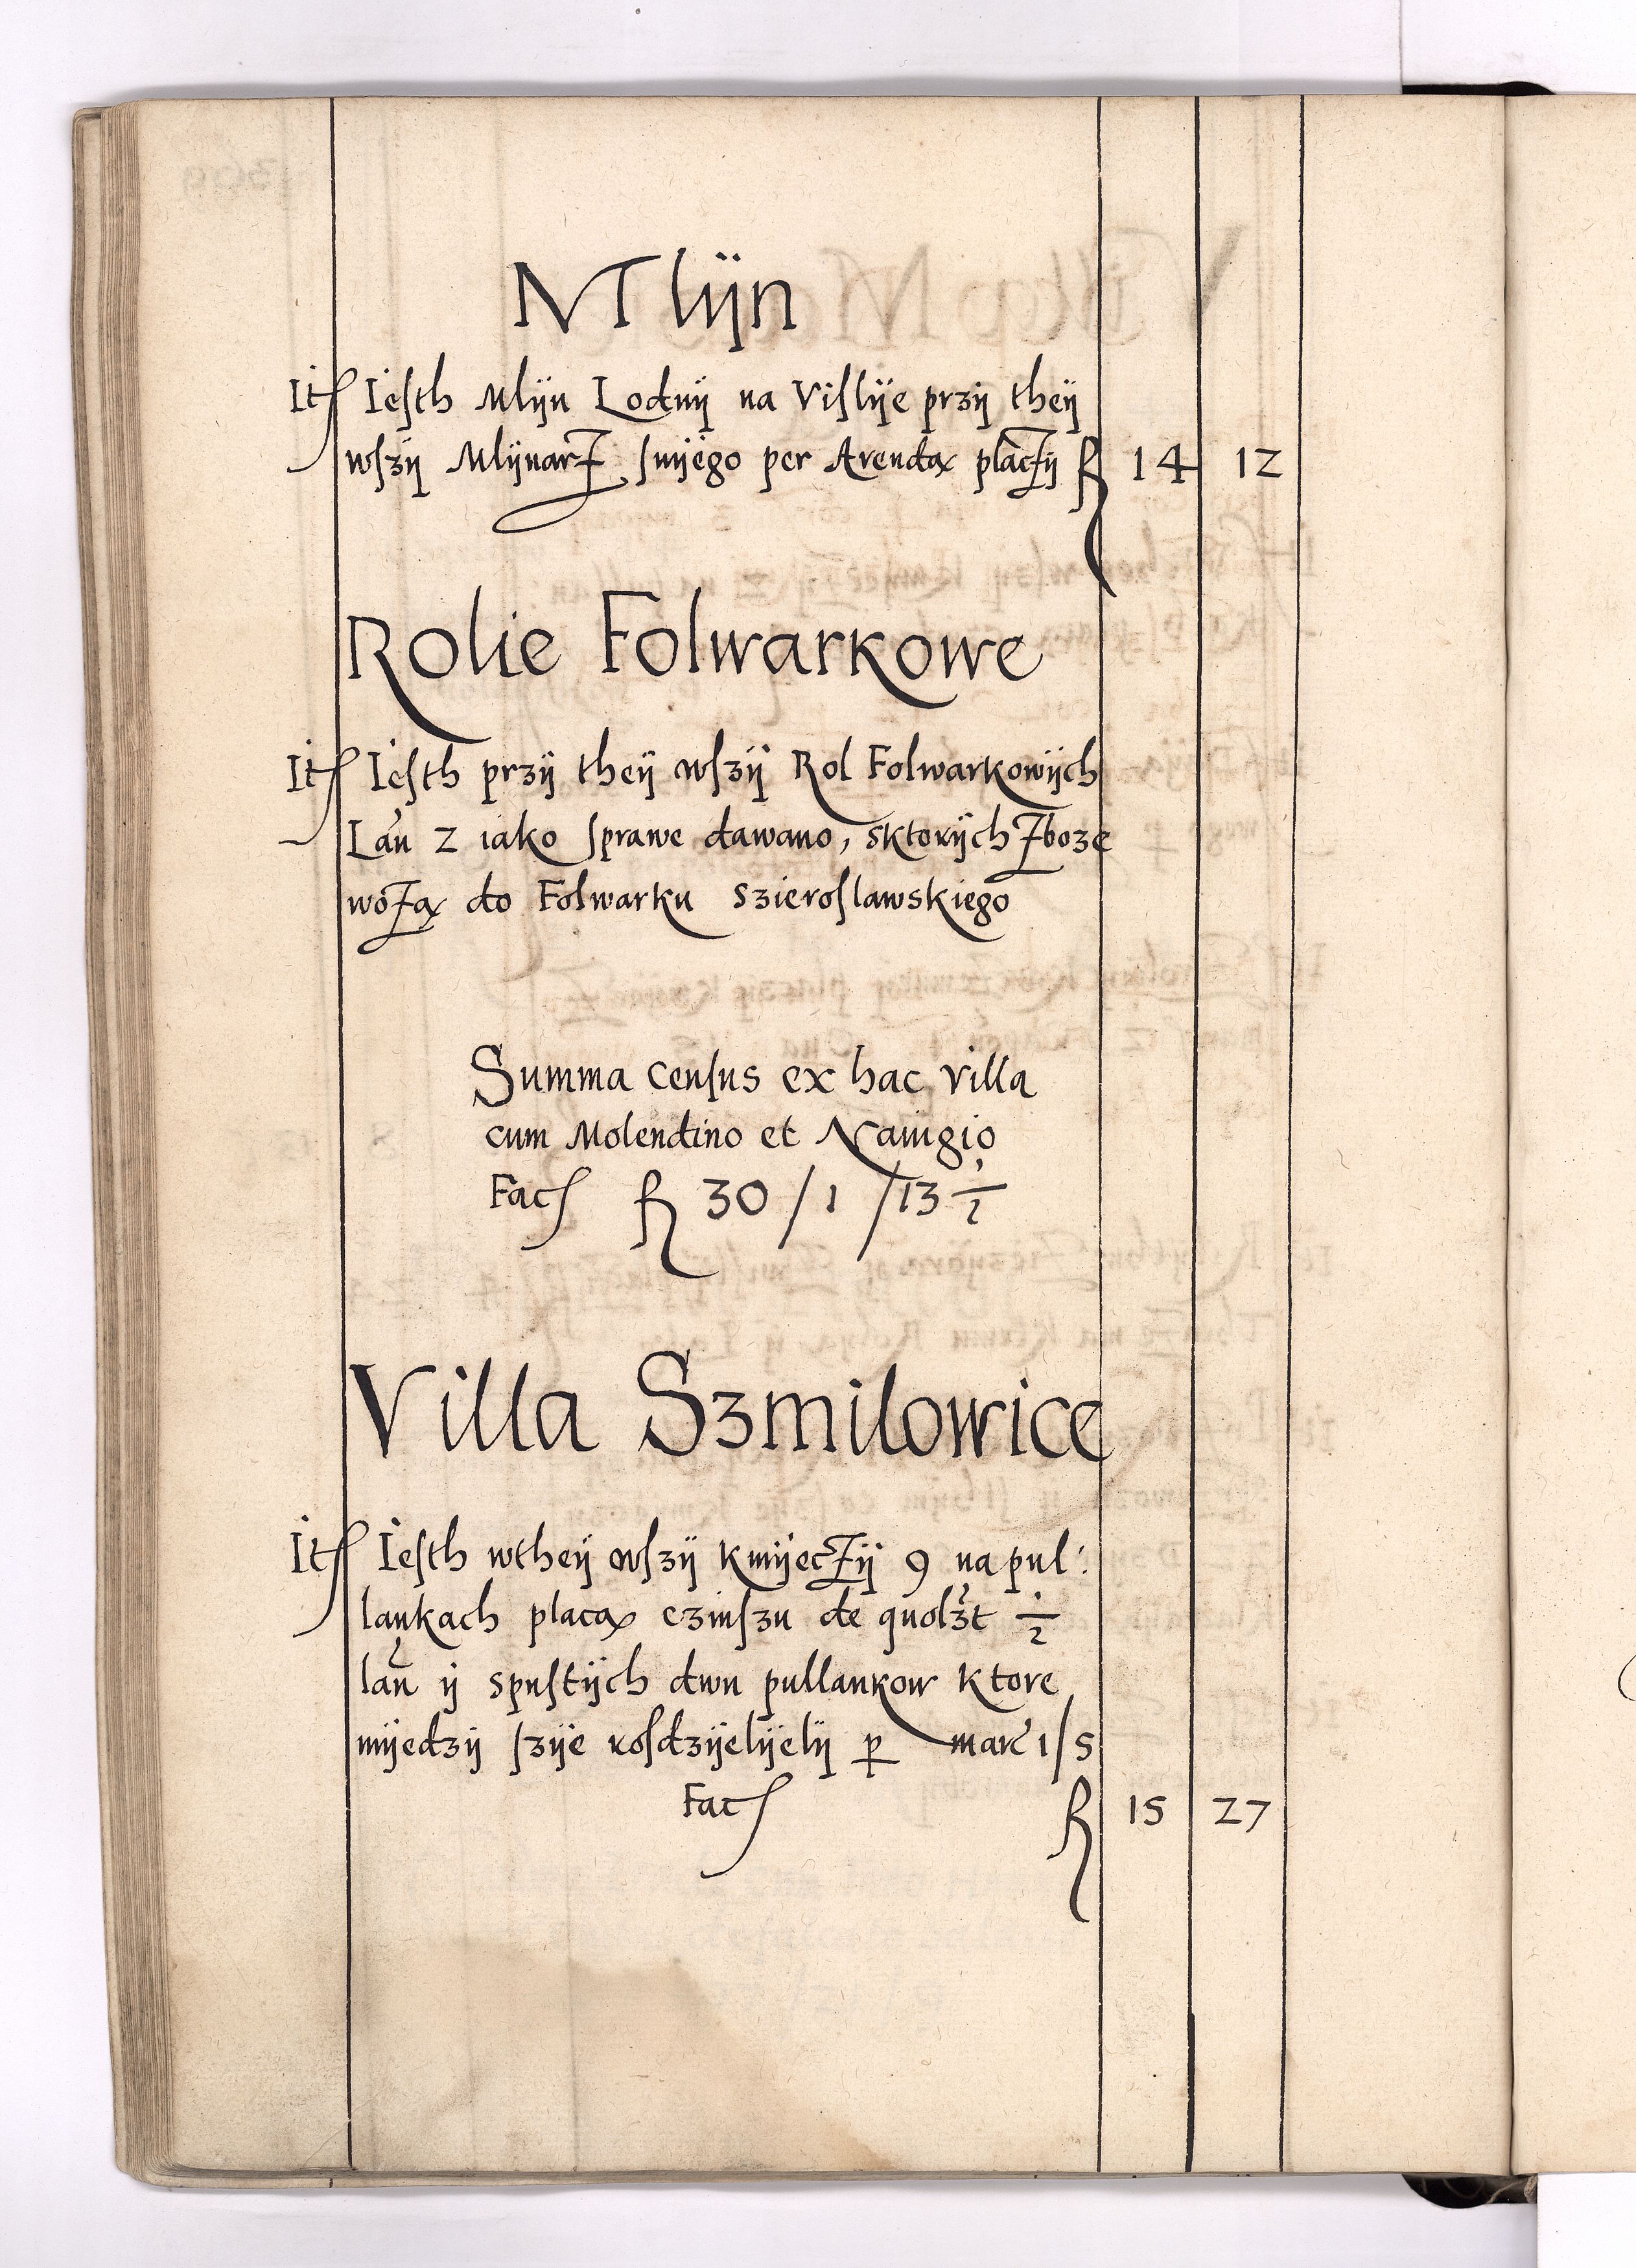 Mlÿn
Itſ Ieſth Mlÿn Lodnÿ na Viſlÿe przÿ theÿ
wſzÿ Mlÿnarz ſnÿego per Arendą placzÿ ꝶ 14 12
Rolie Folwarkowe
Itſ Ieſth przÿ theÿ wſzÿ Rol Folwarkowÿch
Lan 2 iako ſprawe dawano, sktorÿch zboze
wozą do Folwarku szieroſlawskiego
Summa Cenſus ex hac villa
cum Molendino et Nauigio
Facſ ꝶ 30 / 1 / 13 1/2
Villa Szmilowice
Itſ Ieſth wtheÿ wſzÿ kmÿeczÿ 9 na pul:
lankach placą czinſzu de quolzt 1/2
lan ÿ spuſtÿch dwu pullankow ktore
mÿedzÿ ſzÿe roſdzÿelÿelÿ ꝑ marc 1/5
Facſ ꝶ 15 27